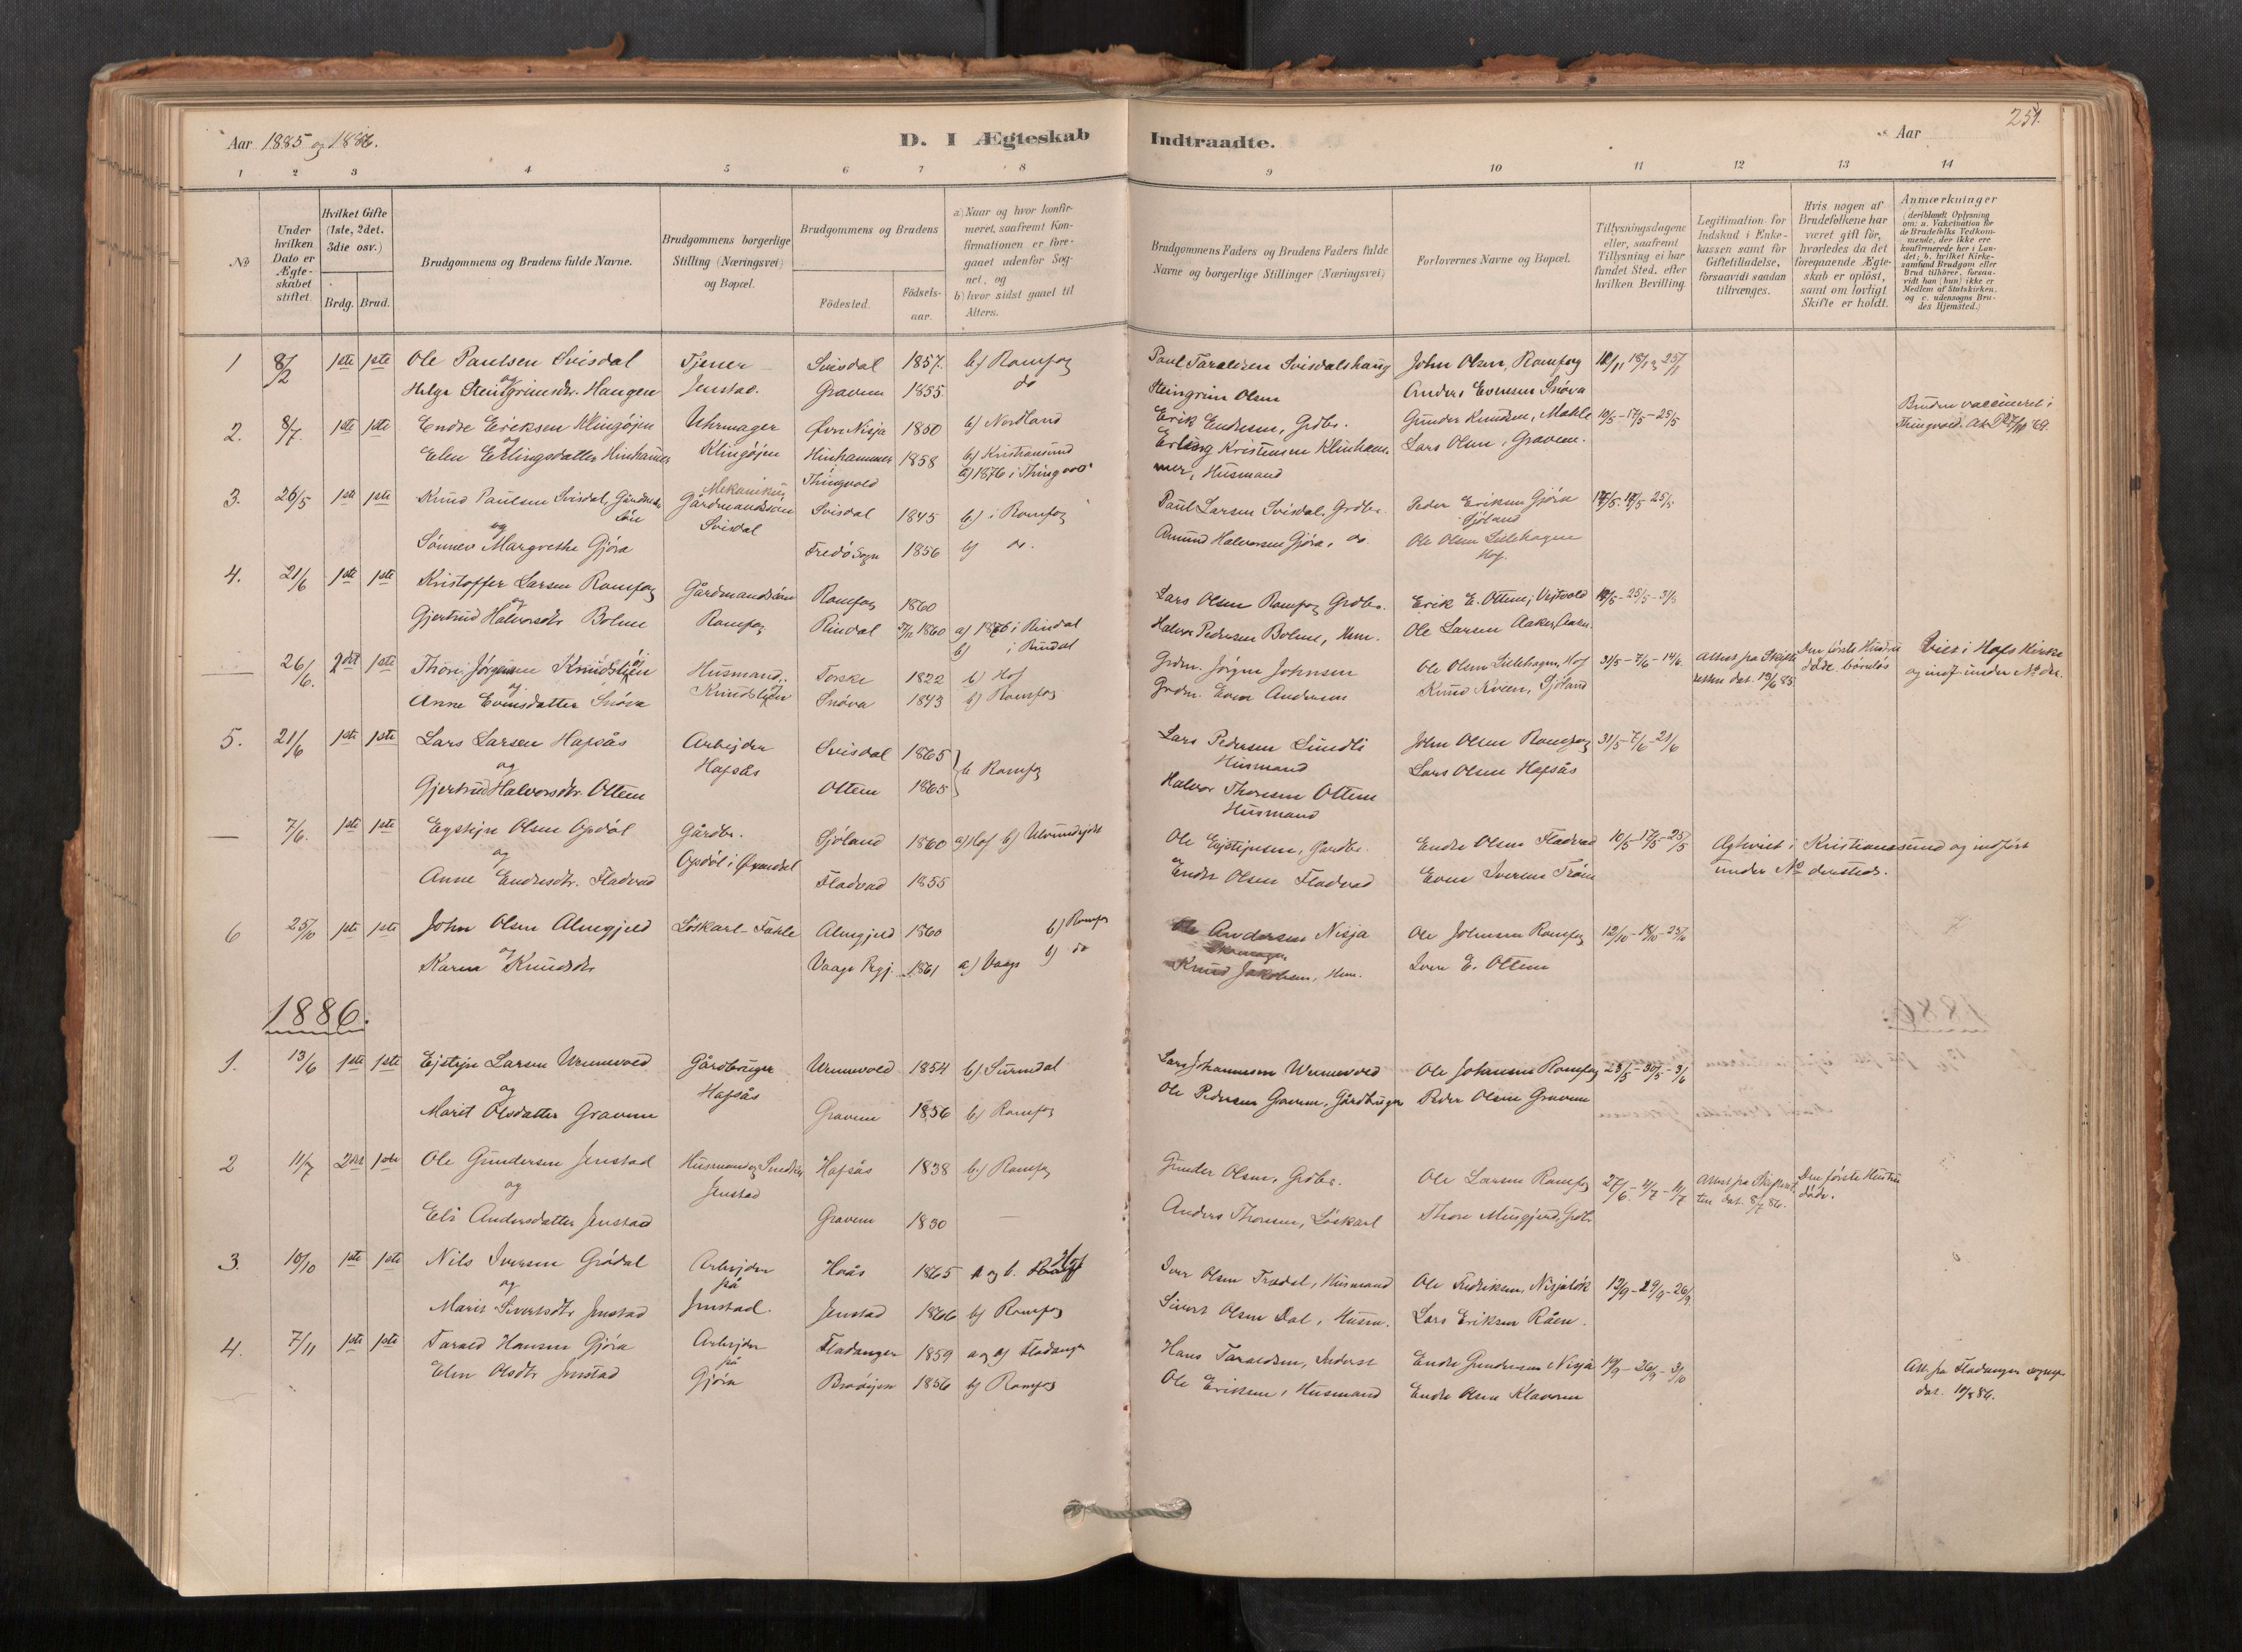 Aar 1885 og 1886.
D. I Ægteskab Indtraadte.
Aar
251.
1 2 3 4 5 6 7 8 9 10 11 12 13 14
No
Under hvilken Dato er Ægteskabet stiftet
Hvilket Gifte (1ste, 2det, 3die osv.)
Brdg. Brud.
Brudgommens og Brudens fulde Navne.
Brudgommens borgerlige Stilling (Næringsvei) og Bopæl.
Brudgommens og Brudens
Fødested.
Fødselsaar.
a) Naar og hvor konfirmeret, saafremt Konfirmationen er foregaaet udenfor Sognet, og
b) hvor sidst gaaet til Alters.
Brudgommens Faders og Brudens Faders fulde Navne og borgerlige Stillinger (Næringsvei)
Forlovernes Navne og Bopæl.
Tillysningsdagene eller, saafremt Tillysning ei har fundet Sted, efter hvilken Bevilling.
Legitimation for Indskud i Enkekassen samt for Giftetilladelse, forsaavidt saadan tiltrænges.
Hvis nogen af Brudefolkene har været gift før, hvorledes da det foregaaende Ægteskab er opløst, samt om lovligt Skifte er holdt.
Anmærkninger (deriblandt Oplysning om: a. Vakcination for de Brudefolks Vedkommende, der ikke ere konfirmerede her i Landet; b. hvilket Kirkesamfund Brudgom eller Brud tilhører, forsaavidt han (hun) ikke er Medlem af Statskirken, og c. udensogns Brudes Hjemsted.)
1 8/2 1ste 1ste Ole Paulsen Svisdal Tjener Svisdal 1857. b) Romfog Paul Taraldsen Svisdalshaug John Olsen, Romfog
og
Helga Steingrimsdr. Haugen Jenstad. Gravem 1855 do Steingrim Olsen Anders Evensen Snøva
2. 8/7. 1ste 1ste Endre Eriksen Klingøjen Uhrmager Øvre Nisja 1850 b) Nordland Erik Endresen, Grdbr. Gunder Knudsen, Mæhle 10/5-17/5-25/5 Bruden vaccineret i
og
Elen Erlingsdatter Hinhammer Klingøjen Hinhammer 1858 b) Kristiansund Erling Kristensen Klinham- Lars Olsen, Gravem. Thingvold
Thingvold a) 1876 i Thingvold mer, Husmand
3. 26/5 1ste 1ste Knud Paulsen Svisdal, Gårdmands Søn Mekanikus Gårdmandssøn Svisdal Svisdal 1845 b) i Romfog Paul Larsen Svisdal, Grdbr. Peder Eriksen Gjøra Sjøland 17/5 25/5
og
Sønnev Margrethe Gjøra Fredø Sogn 1856 b) do. Amund Halvorsen Gjøra, do. Ole Olsen Lilehagen Hof.
4. 21/6 1ste 1ste Kristoffer Larsen Romfog Gårdmandssøn Romfog 1860 Lars Olsen Romfog Grdbr. Erik E. Ottem, Vejtvold 25/5-31/5
og
Gjertrud Halvorsdr Bolme Romfog Rindal 1860 a) 1876 i Rindal b) i Rindal Halvor Pedersen Bolme, Hsm. Ole Larsen Aaker
26/6. 2det 1ste Thore Jørgensen Knudsliøen Husmand, Torske 1822 b) Hof Grdm. Jørgen Johnsen Ole Olsen Lilehagen, Hof 31/5-7/6-14/6. Attest fra Skifteretten dat. 19/6 85 Den første Hustru døde, børnløs Viet i Hofs Kirke
og
Anne Evensdatter Snøva Knudsliøen Snøva 1843 b) Romfog Grdm. Even Andersen Knud Kveen, Sjøland og indf. under No der.
5. 21/6 1ste 1ste Lars Larsen Hafsås Arbejder Svisdal 1865 b Romfog Lars Pedersen Sundli Husmand John Olsen Romfog 31/5-7/6-21/6
og
Gjertrud Halvorsdr. Ottem Hafsås Ottem 1865 Halvor Thoresen Ottem Husmand Lars Olsen Hafsås
7/6. 1ste 1ste Eystejn Olsen Opdøl Gårdbr. Sjøland 1860 a) Hof b) Ulvundejdet Ole Ejstejnsen, Gårdbr. Endre Olsen Fladvad 10/5-17/5-25/5 Ægtviet i Kristiansund og indført
og
Anne Endresdr. Fladvad Opdøl i Øxendal Fladvad 1855 Endre Olsen Fladvad Even Iversen under No densteds.
6 25/10 1ste 1ste John Olsen Almgjeld Løskarl - Fahle Almgjeld 1860 b) Romfog Ole Andersen Nisja Ole Johnsen Romfog 12/10-18/10-25/10
og
Karen Knudsdr Vaage Prgj. 1861 a) Vaage b) do Knud Jakobsen, Hsm. Iver E. Ottem
1886.
1. 13/6 1ste 1ste Ejstejn Larsen Urunvold Gårdbruger Urunvold 1854 b) Surndal Lars Johannesen Urunvold Ole Johansen Romfog 23/5-30/5-3/6
og
Marit Olsdatter Gravem Hafsås Gravem 1856 b) Romfog Ole Pedersen Gravem, Gårdbruger Peder Olsen Gravem
2 11/7 2det 1ste Ole Gundersen Jenstad Husmand og Snedker Hafsås 1838 b) Romfog Gunder Olsen, Grdbr. Ole Larsen Romfog 27/6-4/7-11/7 Attest fra Skifteretten dat. 8/7 86. Den første Hustru døde.
og
Eli Andersdatter Jenstad Jenstad Gravem 1830 — Anders Thoresen, Løskarl Thore Musgjerd, Grdbr
3. 10/10 1ste 1ste Nils Iversen Grødal Arbejder på Hoås 1865 a og b. Hof Iver Olsen Trædal, Husmand Ole Fredriksen, Nisjaløk 12/9-19/9-26/9
og
Marit Sivertsdr Jenstad Jenstad. Jenstad 1866 b) Romfog Sivert Olsen Dal, Husm. Lars Eriksen Råen.
4. 7/11 1ste 1ste Tarald Hansen Gjøra Arbejder på Fladanger 1859 a og b) Fladanger Hans Taraldsen, Inderst Endre Gundersen Nisja 19/9-26/9-3/10 Att. fra Fladanger sognepr.
Elen Olsdr Jenstad Gjøra 1856 b) Romfog Ole Eriksen, Husmand Endre Olsen Klaverem dat. 10/8 86.